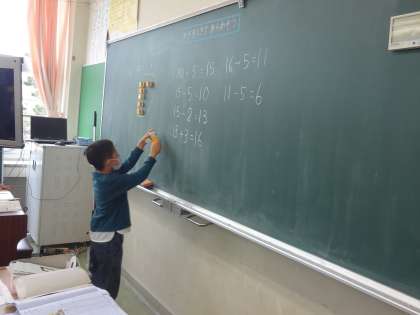 10+5=15 16-5=11
15-5=10 11-5=6
15-2=13
13+3=16